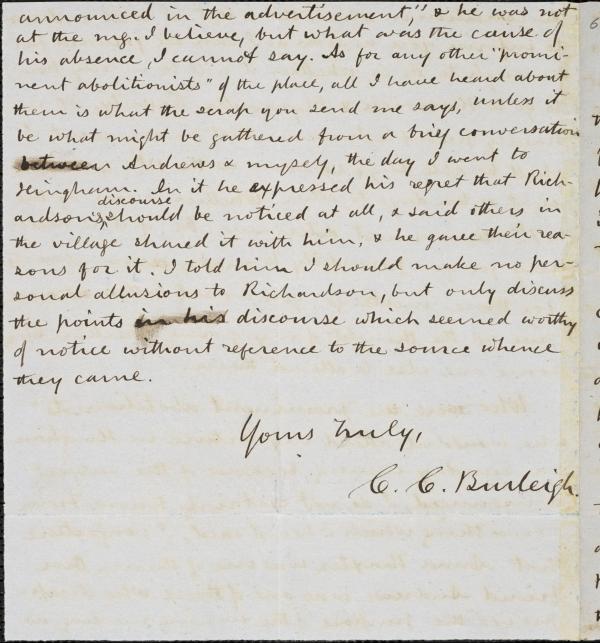 announced in the advertisement," & he was not
at the mg. I believe, but what was the cause of
his absence, I cannot say. As for any other "promi-
nent abolitionists" of the place, all I have heard about
them is what the scrap you send me says, unless it
be what might be gathered from a brief conversation
between Andrews & myself, the day I went to
Hingham. In it he expressed his regret that Rich-
ardson's discourse should be noticed at all, & said others in
the village shared it with him, & he gave their rea-
sons for it. I told him I should make no per-
sonal allusions to Richardson, but only discuss
the points in his discourse which seemed worthy
of notice without reference to the source whence
they came.
Yours truly,
C. C. Burleigh.
6